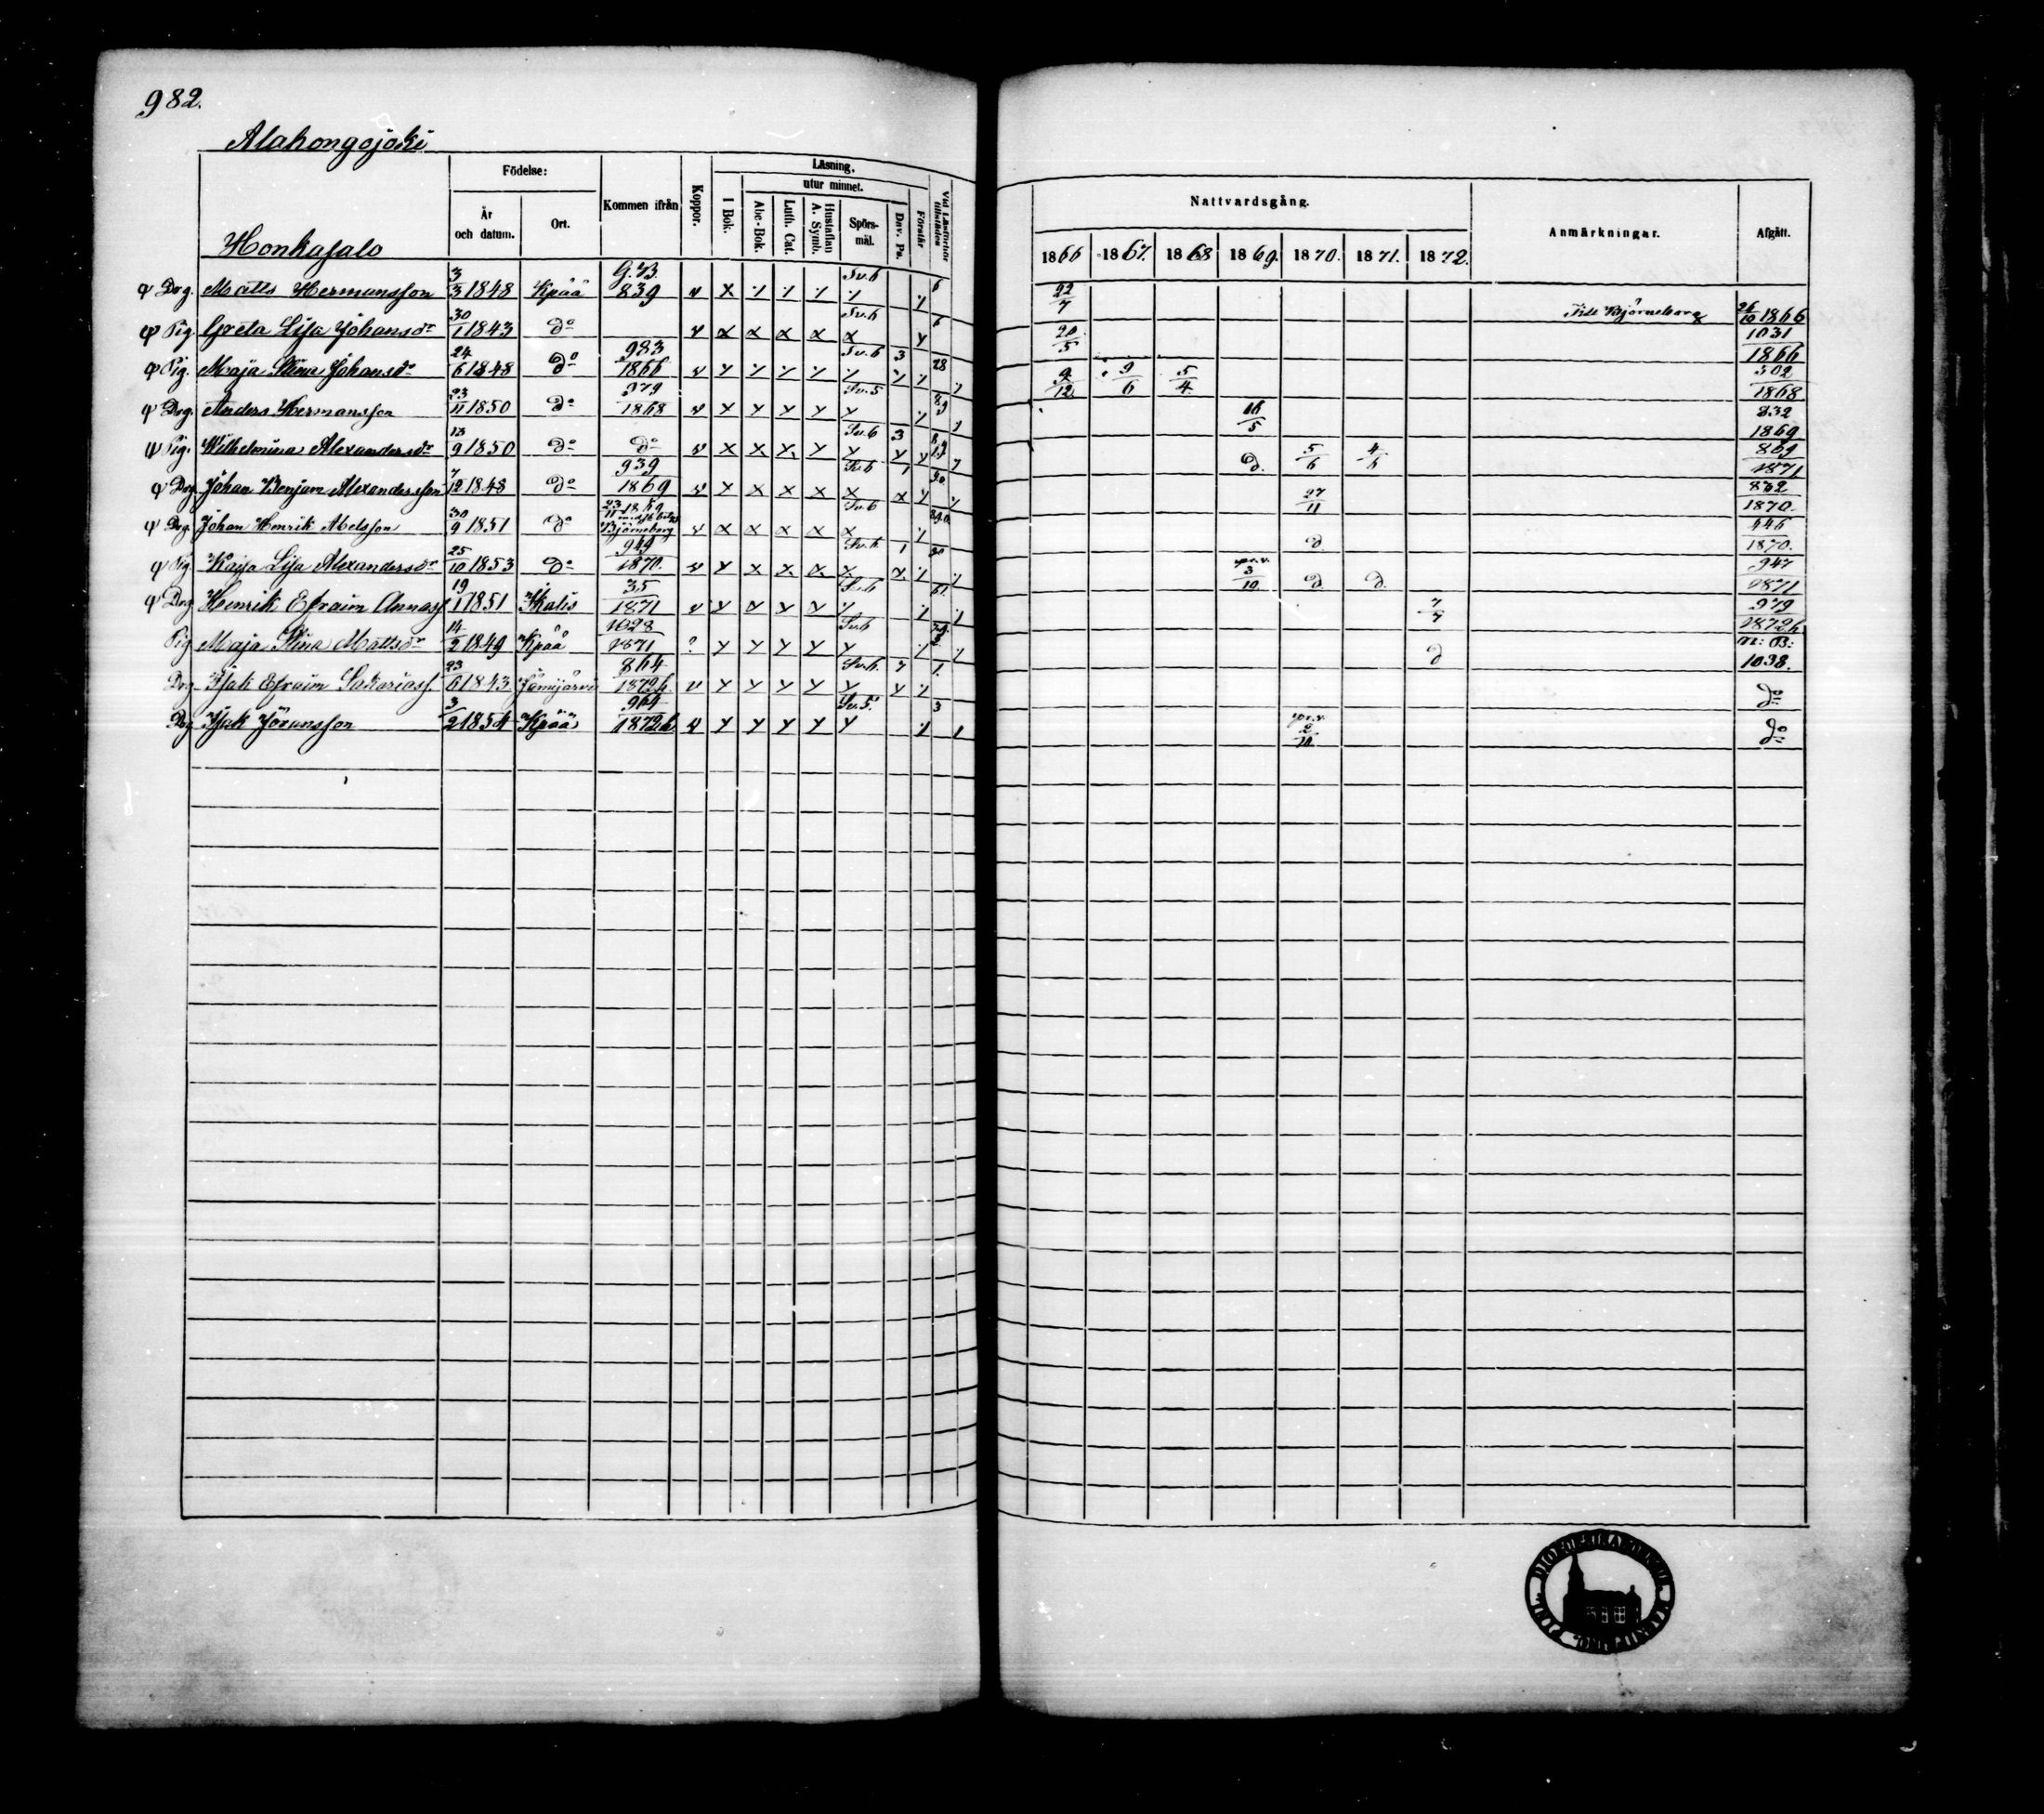 982.
Alahongojoki
Födelse:
Läsning,
utur minnet.
År och datum.
Ort.
Kommen ifrån
Koppor.
I Bok.
Abc-Bok.
Luth. Cat.
Hustaflan A. Symb.
Spörs-mål.
Dav. Ps.
Förstår
Vid Läsförhör tillstädes
Nattvardsgång.
1866 1867. 1868 1869. 1870. 1871. 1872.
Anmärkningar.
Afgått.
Honkasalo
Drg. Matts Hermansson 3/3 1848 Kpää G.B. 839 Sv. 6 22/7 Till Björneborg 26/10 1866
Pig. Greta Lisa Johansdr 30/1 1843 do Sv. 6 20/5 1031/1866
Pig. Maja Stina Johansdr 24/6 1848 do 983/1866 Sv. 6 3 28 9/12 9/6 5/4 502/1868
Drg. Anders Hermansson 23/11 1850 do 979/1868 Sv. 5 16/5 832/1869
Pig. Wilhelmina Alexandersdr 13/9 1850 do do Sv. 6 3 d. 5/6 4/6 869/1871
Drg. Johan Benjam Alexandersson 7/12 1848 do 939/1869 27/11 832/1870.
Drg. Johan Henrik Abelsson 30/9 1851 do Björneborg Sv. 6 d 446/1870.
Pig Kajsa Lisa Alexandersdr 25/10 1853 do 949/1870. 1 3/10 d d. 947/1871
Drg Henrik Efraim Annass. 19/1 1851 Ikalis 35/1871 Sv. 6 7/7 979/1872
Pig Maja Stina Mattsdr 14/2 1849 Kpää 1028/1871 Sv. 6 d m: B: 1038.
Drg Isak Efraim Sakariass. 23/6 1843 Jämijärvi 864/1872 Sv. 6. 7 do
Drg Isak Jöransson 3/2 1854 Kpää 964/1872 Sv. 5. 3 2/10 do